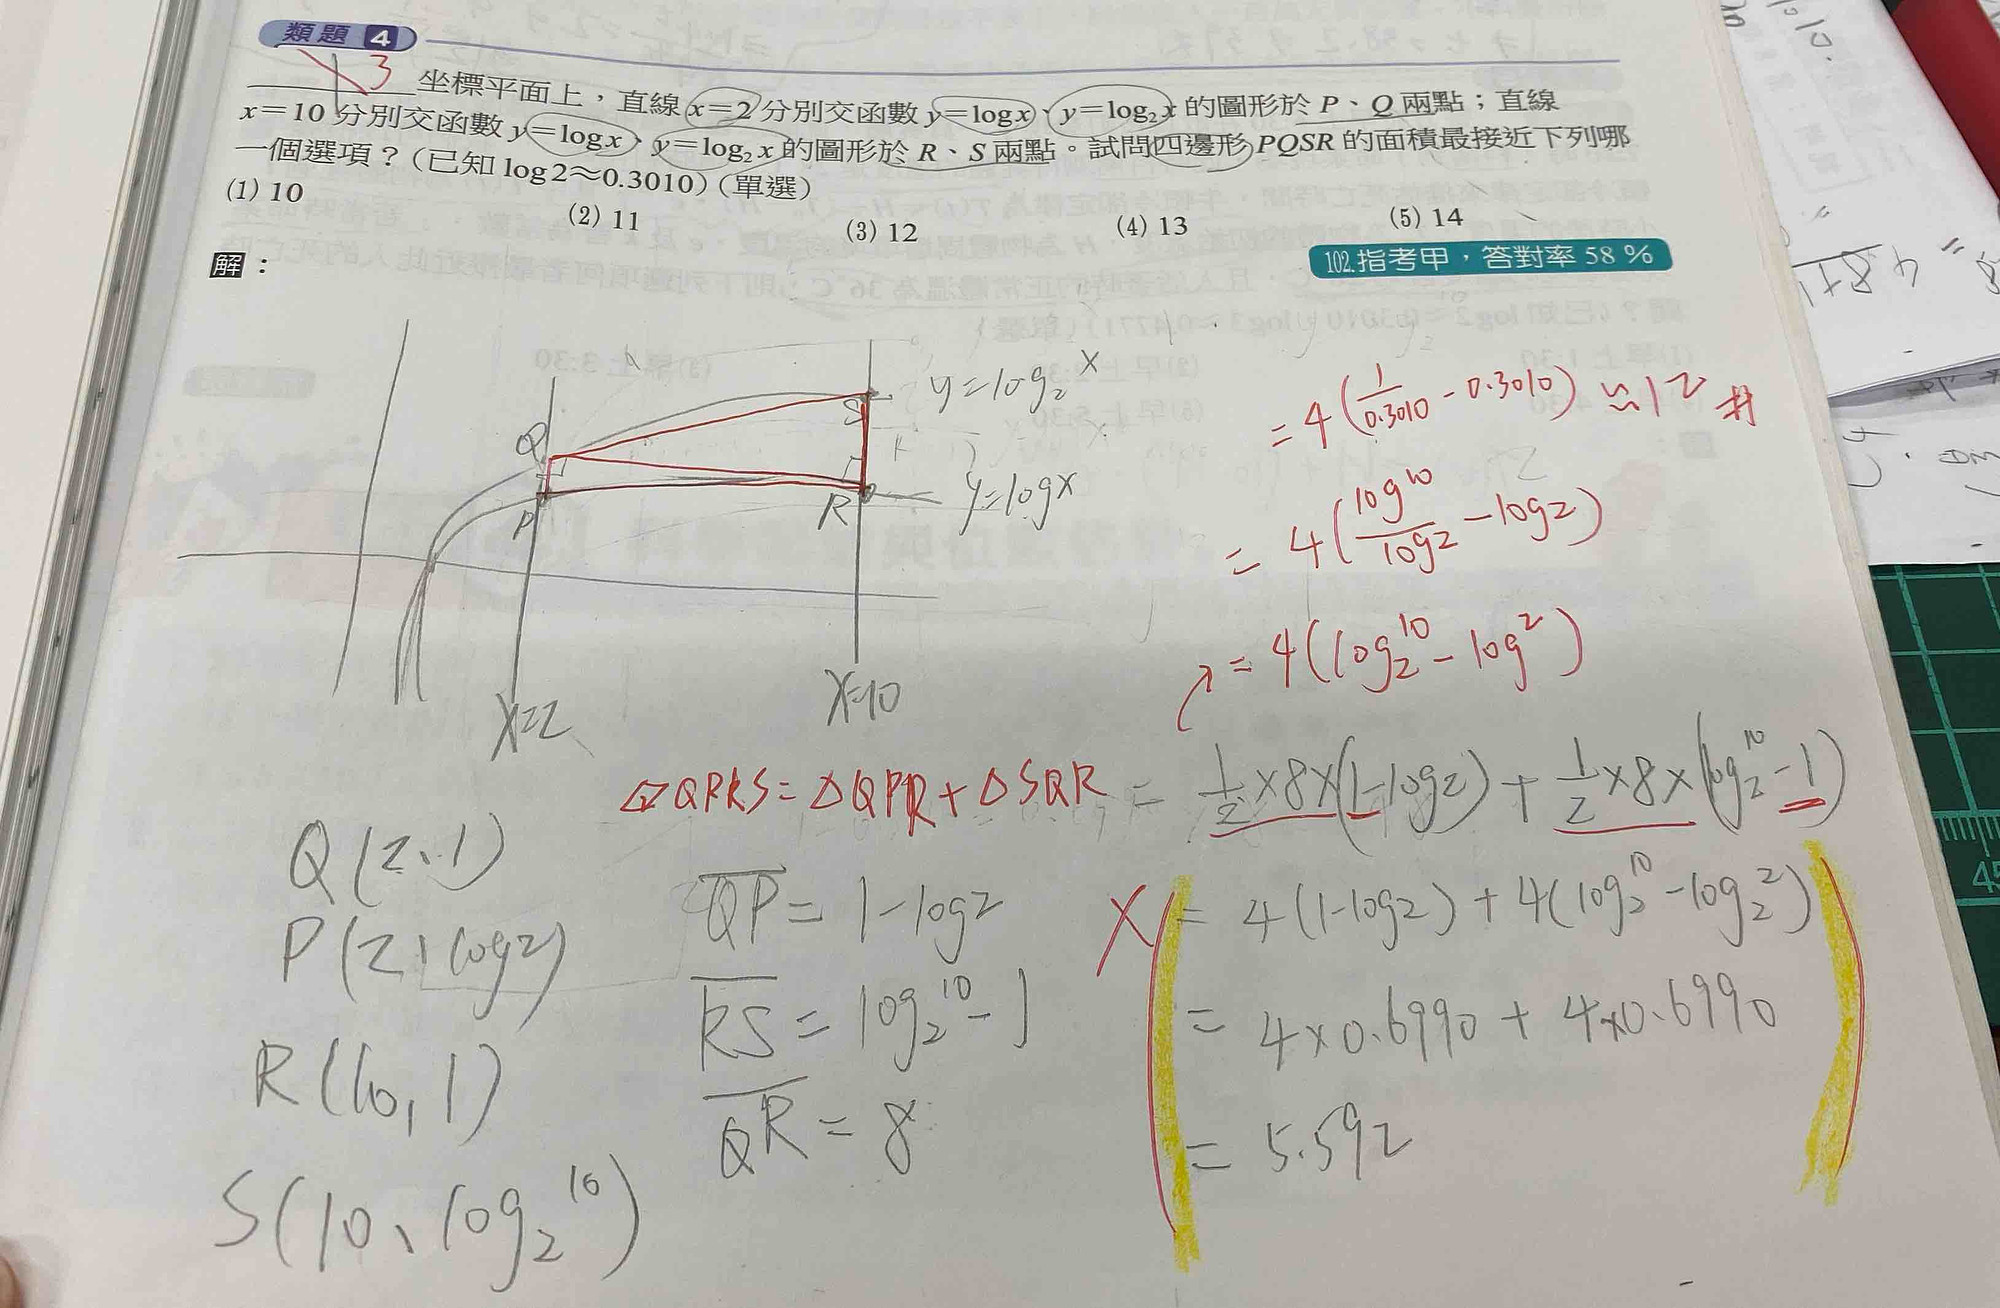 類題 4
3
坐標平面上，直線 x=2 分別交函數 y=logx、y=log₂x 的圖形於 P、Q 兩點；直線
x=10 分別交函數 y=logx、y=log₂x 的圖形於 R、S 兩點。試問四邊形 PQSR 的面積最接近下列哪
一個選項？(已知 log2≈0.3010)(單選)
(1) 10 (2) 11 (3) 12 (4) 13 (5) 14
102.指考甲，答對率 58 %
解：
y=log₂x
Q
S
P
R
y=logx
x=2
x=10
= 4(1/0.3010 - 0.3010) ≈ 12 #
= 4(log10/log2 - log2)
= 4(log₂10 - log2)
QPRS = △QPR + △SQR = 1/2×8×(1-log2) + 1/2×8×(log₂10-1)
Q(2、1)
P(2、log2)
R(10,1)
S(10、log₂10)
QP = 1-log2
RS = log₂10-1
QR = 8
X = 4(1-log2) + 4(log₂10 - log₂2)
= 4×0.6990 + 4×0.6990
= 5.592